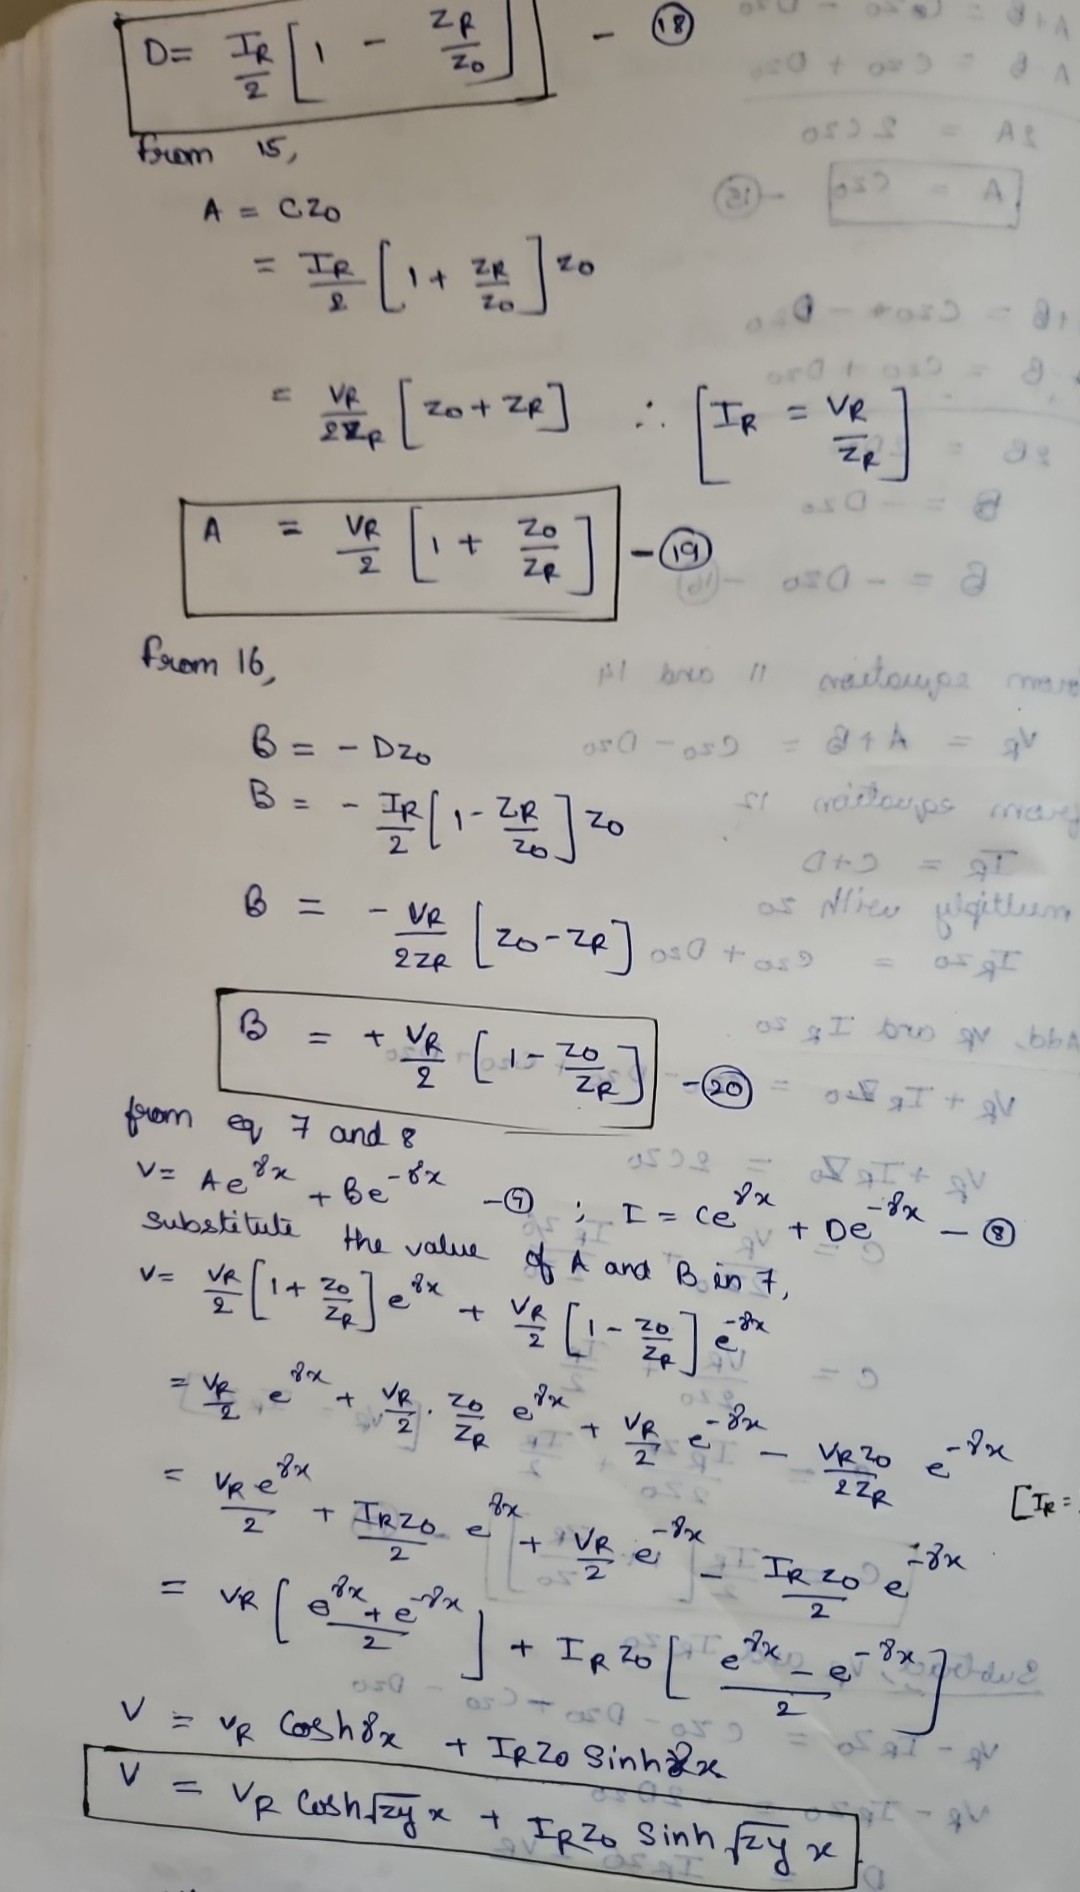 D = I_R/2 [1 - Z_R/Z_0] - (18)
from 15,
A = CZ_0
= I_R/2 [1 + Z_R/Z_0] Z_0
= V_R/2Z_R [Z_0 + Z_R] ∴ [I_R = V_R/Z_R]
A = V_R/2 [1 + Z_0/Z_R] - (19)
from 16,
B = - DZ_0
B = - I_R/2 [1 - Z_R/Z_0] Z_0
B = - V_R/2Z_R [Z_0 - Z_R]
B = + V_R/2 [1 - Z_0/Z_R] - (20)
from eq 7 and 8
V = Ae^γx + Be^-γx - (7) ; I = Ce^γx + De^-γx - (8)
substitute the value of A and B in 7,
V = V_R/2 [1 + Z_0/Z_R] e^γx + V_R/2 [1 - Z_0/Z_R] e^-γx
= V_R/2 e^γx + V_R/2 . Z_0/Z_R e^γx + V_R/2 e^-γx - V_R Z_0/2Z_R e^-γx
[I_R =
= V_R e^γx/2 + I_R Z_0/2 e^γx + V_R/2 e^-γx - I_R Z_0/2 e^-γx
= V_R [e^γx + e^-γx/2] + I_R Z_0 [e^γx - e^-γx/2]
V = V_R Cosh γx + I_R Z_0 Sinh γx
V = V_R Cosh √zy x + I_R Z_0 Sinh √zy x